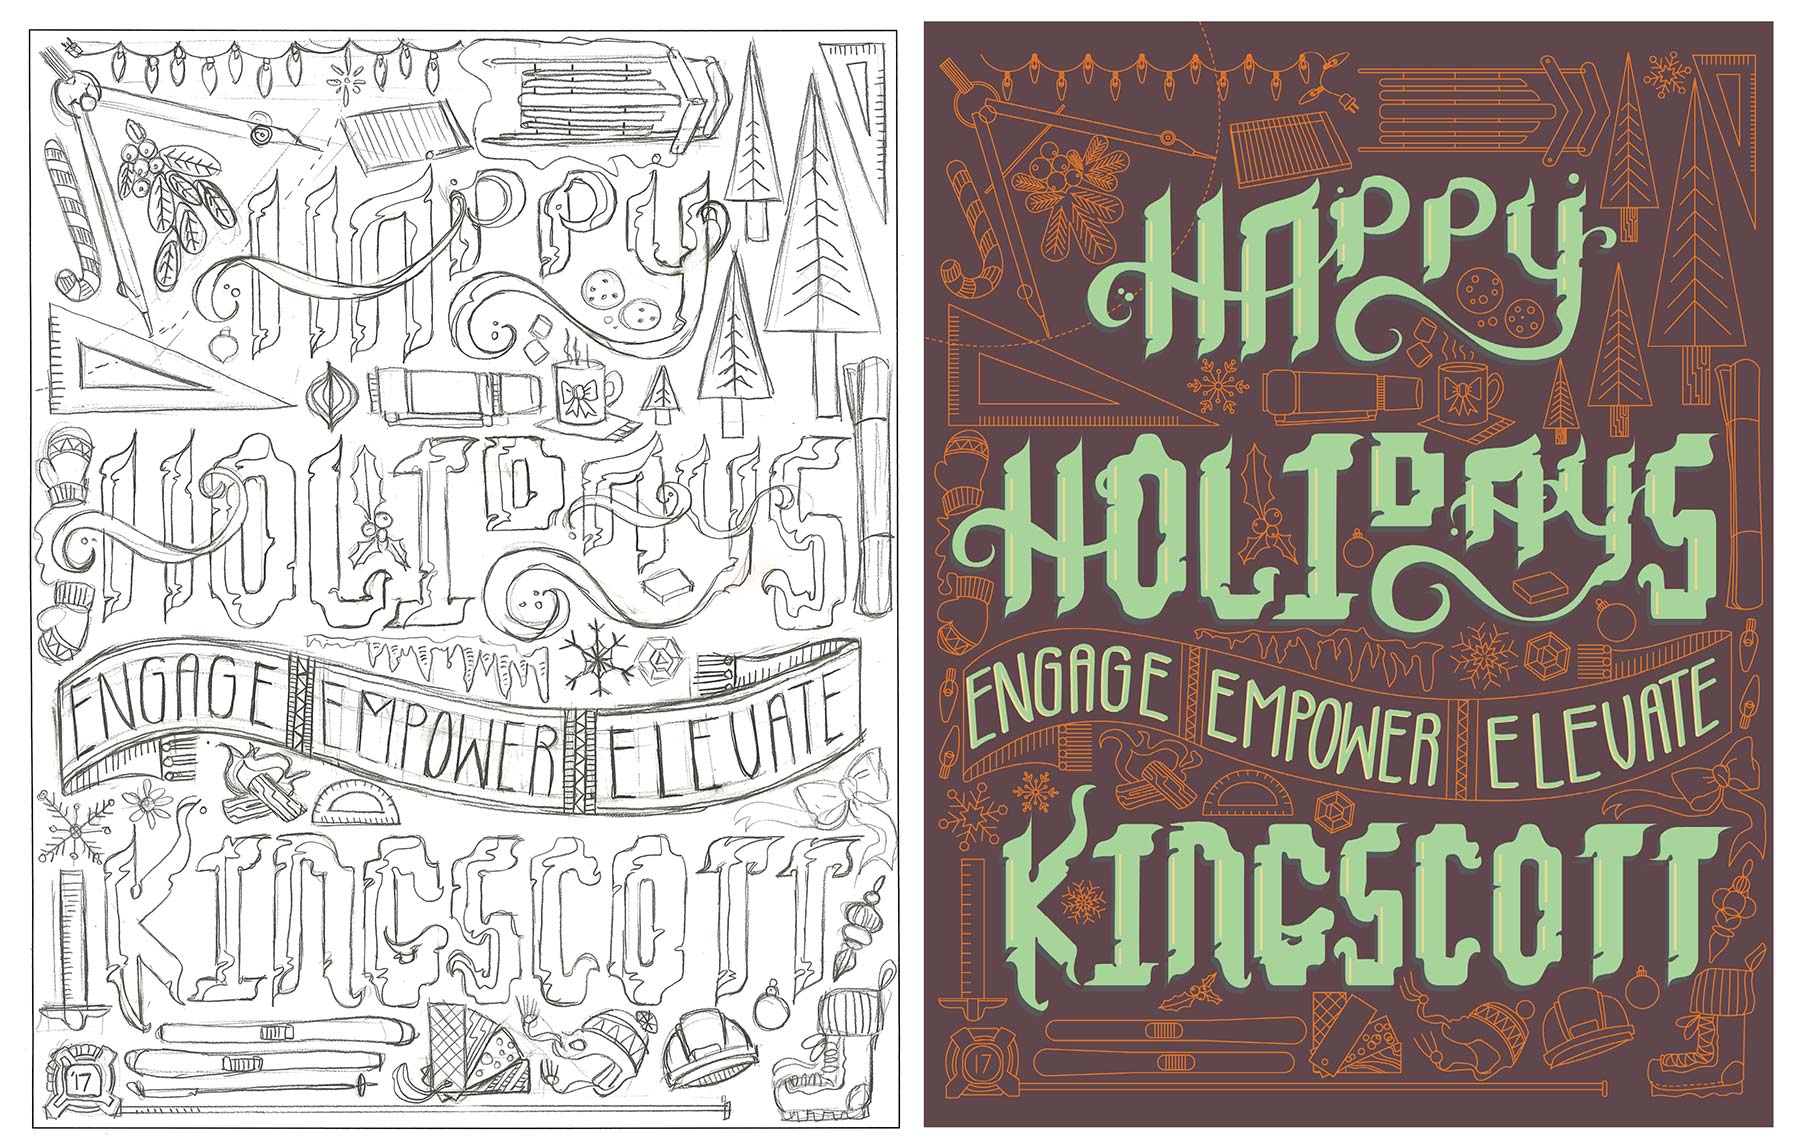 HAPPY
HOLIDAYS
ENGAGE EMPOWER ELEVATE
KINGSCOTT
'17
HAPPY
HOLIDAYS
ENGAGE EMPOWER ELEVATE
KINGSCOTT
17